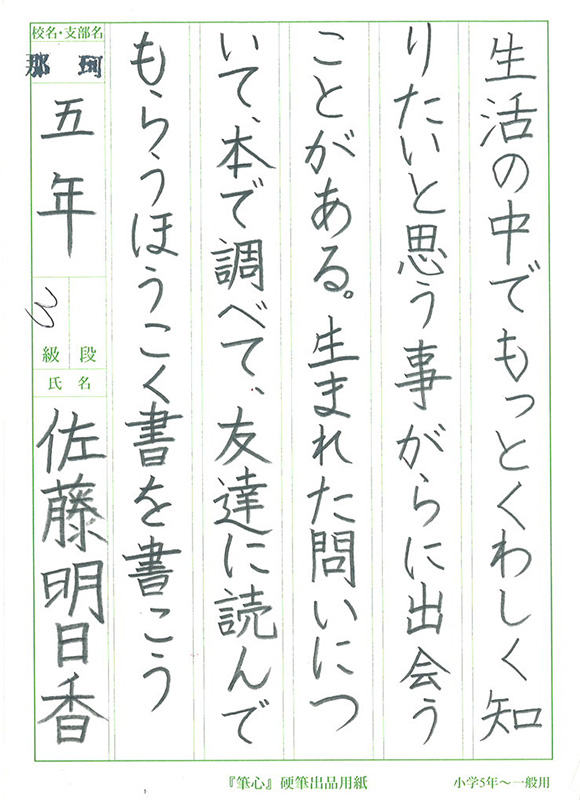 生活の中でもっとくわしく知
りたいと思う事がらに出会う
ことがある。生まれた問いにつ
いて、本で調べて、友達に読んで
もらうほうこく書を書こう
校名・支部名
那珂
五年
級 段
氏名
佐藤明日香
『筆心』硬筆出品用紙
小学5年〜一般用